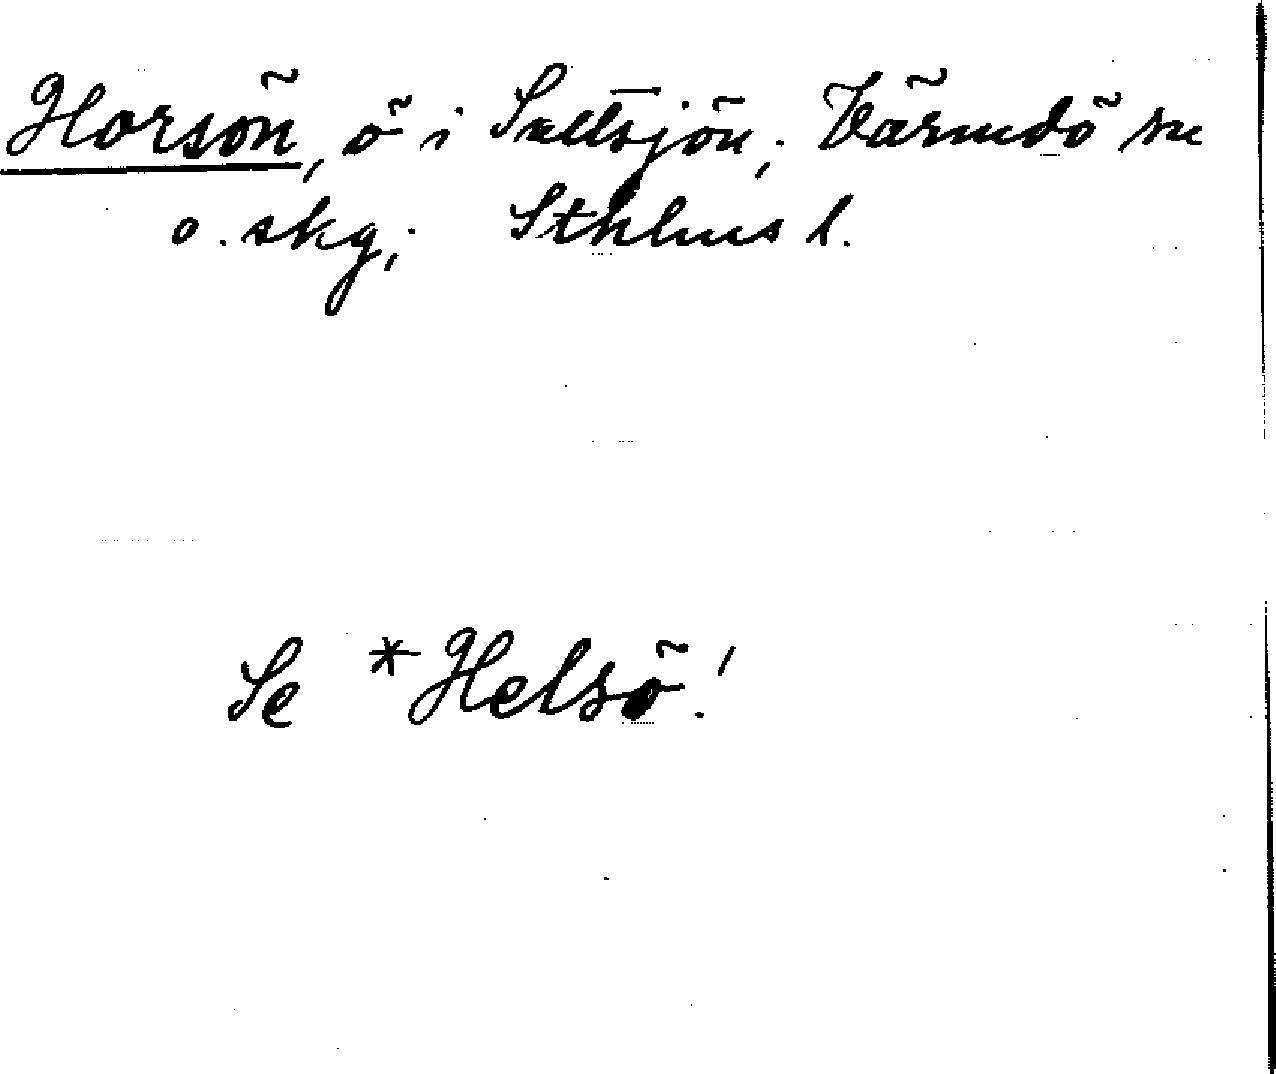 Horsön, ö i Saltsjön; Värmdö sn
o. skg; Sthlms l.
Se *Helsö!